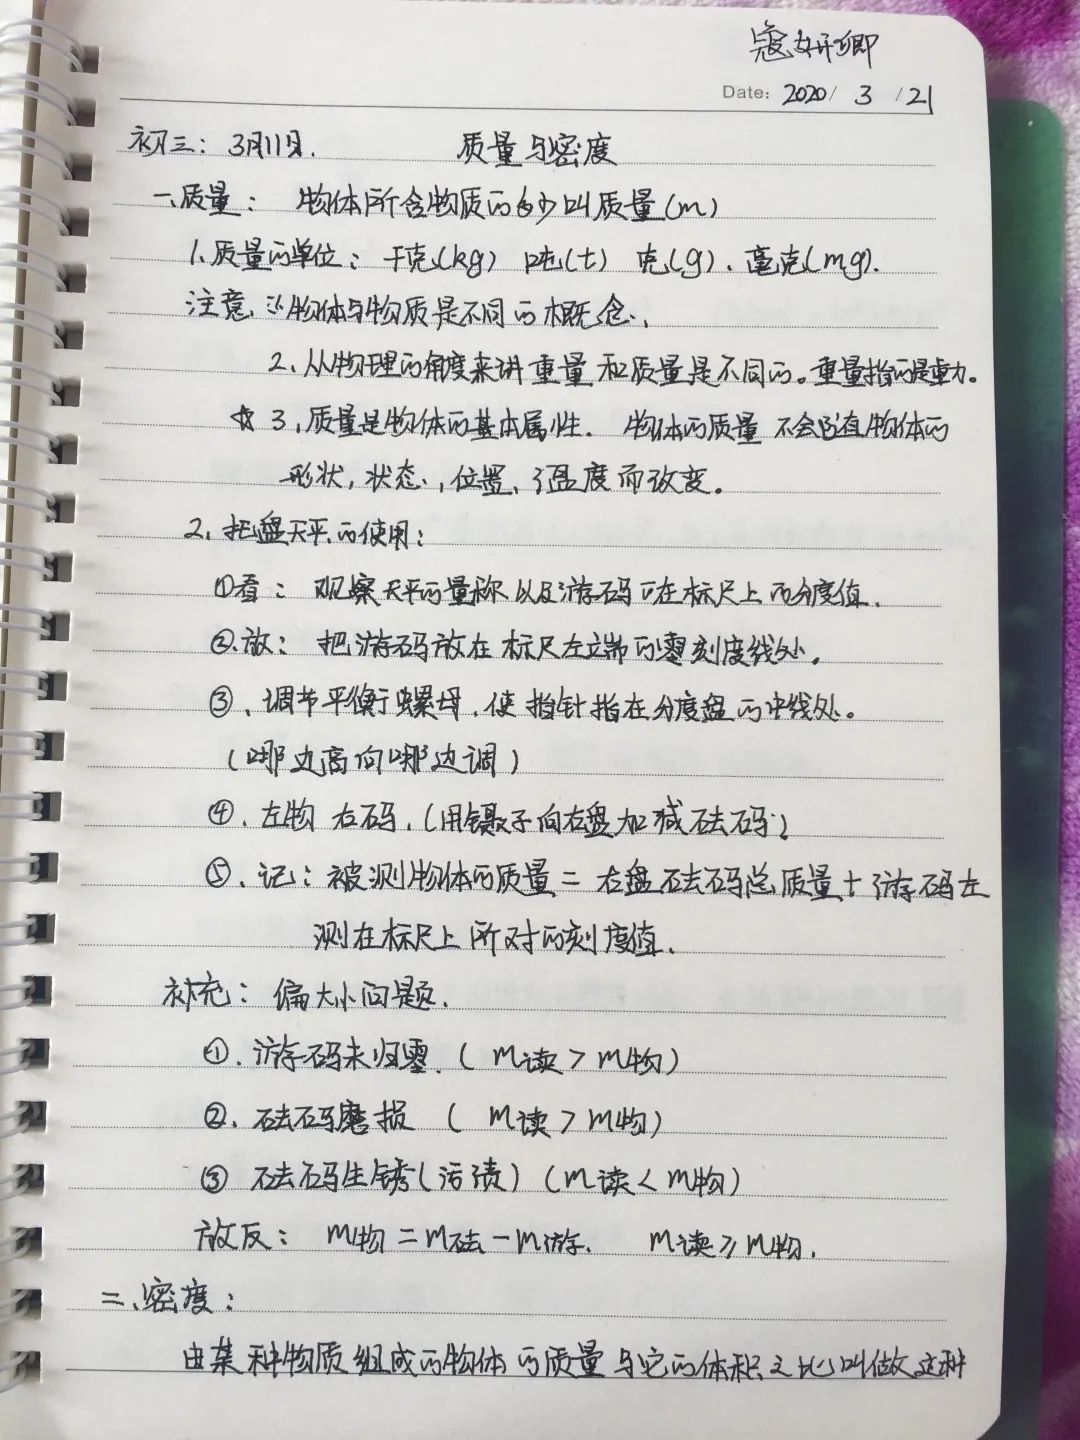 寇妍卿
Date: 2020/ 3 /21
初三: 3月11日. 质量与密度
一、质量: 物体所含物质的多少叫质量(m)
1.质量的单位: 千克(kg) 吨(t) 克(g)、毫克(mg).
注意、1、物体与物质是不同的概念、
2、从物理的角度来讲重量和质量是不同的。重量指的是重力。
☆ 3、质量是物体的基本属性. 物体的质量不会随着物体的
形状,状态、,位置、温度而改变。
2、托盘天平的使用:
①看: 观察天平的量称以及游码在标尺上的分度值.
②.放: 把游码放在标尺左端的零刻度线处。
③、调节平衡螺母,使指针指在分度盘的中线处。
(哪边高向哪边调)
④、左物右码,(用镊子向右盘加减砝码)
⑤、记: 被测物体的质量=右盘砝码总质量+游码左
测在标尺上所对的刻度值.
补充: 偏大小问题.
①.游码未归零.(m读>m物)
②.砝码磨损 (m读>m物)
③ 砝码生锈(污渍)(m读<m物)
放反: m物=m砝-m游. m读≥m物.
二、密度:
由某种物质组成的物体的质量与它的体积之比叫做这种